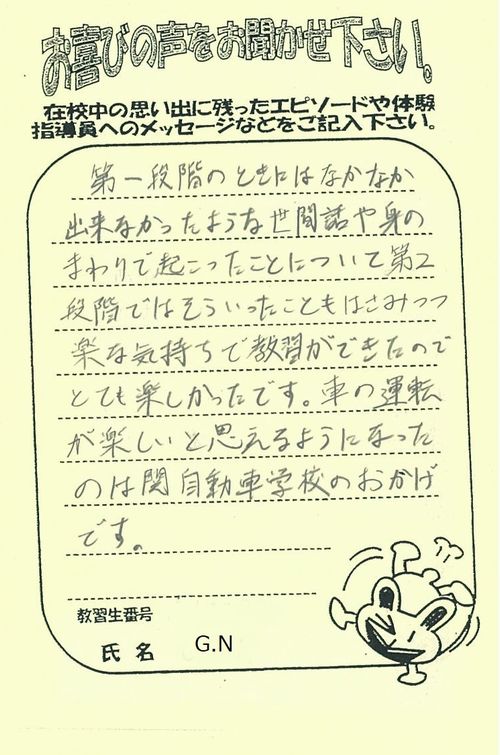 お喜びの声をお聞かせ下さい。
在校中の思い出に残ったエピソードや体験
指導員へのメッセージなどをご記入下さい。
第一段階のときにはなかなか
出来なかったような世間話や身の
まわりで起こったことについて第2
段階ではそういったこともはさみつつ
楽な気持ちで教習ができたので
とても楽しかったです。車の運転
が楽しいと思えるようになった
のは関自動車学校のおかげ
です。
教習生番号
氏名 G.N